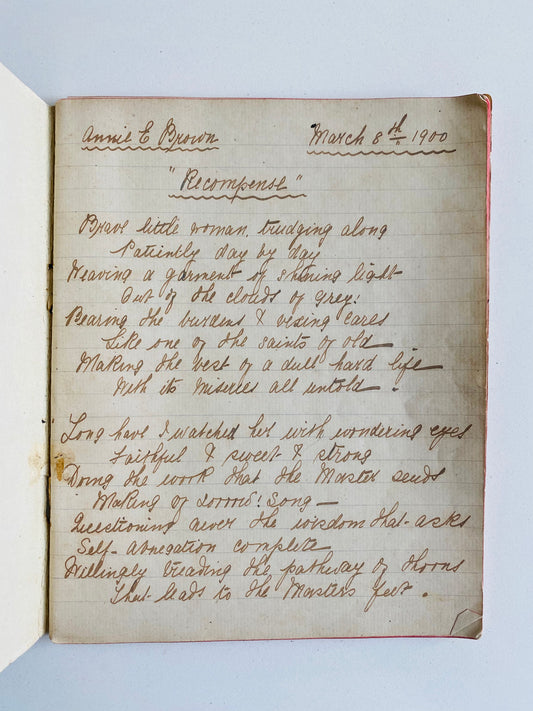 Annie E Brown March 8th 1900
"Recompense"
Brave little woman, trudging along
Patiently day by day
Weaving a garment of shining light
Out of the clouds of grey!
Bearing the burdens & vexing cares
Like one of the saints of old
Making the best of a dull hard life
With its miseries all untold.
Long have I watched her with wondering eyes
Faithful & sweet & strong
Doing the work that the Master sends
Making of sorrows! Song —
Questioning never the wisdom that asks
Self-abnegation complete
Willingly treading the pathway of thorns
That leads to the Masters feet.